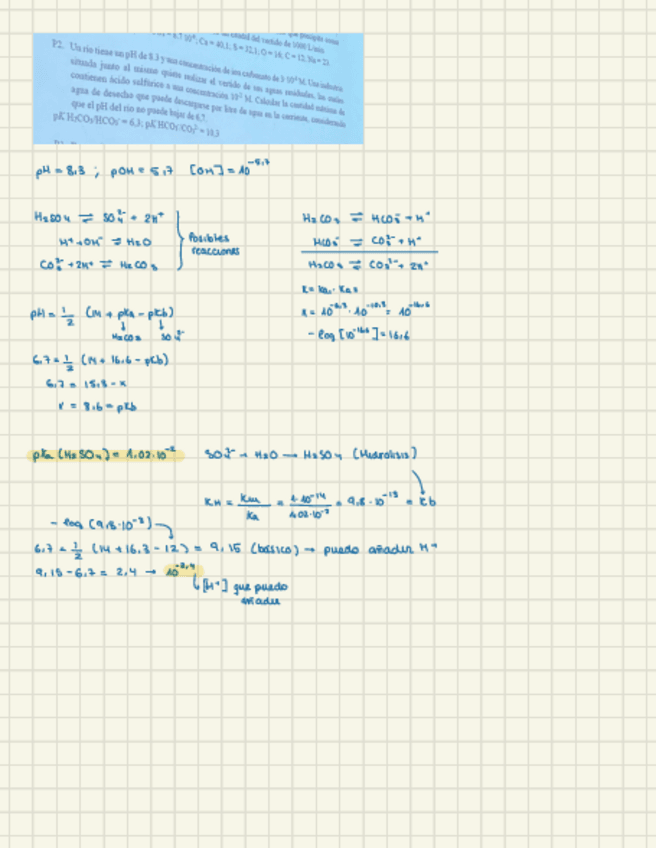 6,7·10⁻⁶; Ca = 40,1; S = 32,1; O = 16; C = 12; Na = 23.
P2. Un río tiene un pH de 8.3 y una concentración de ion carbonato de 3·10⁻⁵ M. Una industria
situada junto al mismo quiere realizar el vertido de sus aguas residuales, las cuales
contienen ácido sulfúrico a una concentración 10⁻² M. Calcular la cantidad máxima de
agua de desecho que puede descargarse por litro de agua en la corriente, considerando
que el pH del río no puede bajar de 6,7.
pK H₂CO₃/HCO₃⁻ = 6,3; pK HCO₃⁻/CO₃²⁻ = 10,3
pH = 8,3 ; pOH = 5,7 [OH] = 10⁻⁵·⁷
H₂SO₄ ⇌ SO₄²⁻ + 2H⁺
H⁺ + OH⁻ ⇌ H₂O
CO₃²⁻ + 2H⁺ ⇌ H₂CO₃
Posibles
reacciones
H₂CO₃ ⇌ HCO₃⁻ + H⁺
HCO₃⁻ ⇌ CO₃²⁻ + H⁺
H₂CO₃ ⇌ CO₃²⁻ + 2H⁺
K = Ka₁ · Ka₂
K = 10⁻⁶·³ · 10⁻¹⁰·³ = 10⁻¹⁶·⁶
- log [10⁻¹⁶·⁶] = 16,6
pH = 1/2 (14 + pKa - pKb)
H₂CO₃ SO₄²⁻
6,7 = 1/2 (14 + 16,6 - pKb)
6,7 = 15,3 - x
x = 8,6 = pKb
pKa (H₂SO₄) = 1.02·10⁻² SO₄²⁻ + H₂O → H₂SO₄ (Hidrólisis)
KH = Kw/Ka = 1·10⁻¹⁴/1.02·10⁻² = 9,8·10⁻¹³ = Kb
- log (9,8·10⁻³)
6,7 = 1/2 (14 + 16,3 - 12) = 9,15 (básico) → puedo añadir H⁺
9,15 - 6,7 = 2,4 → 10⁻²·⁴
[H⁺] que puedo
añadir